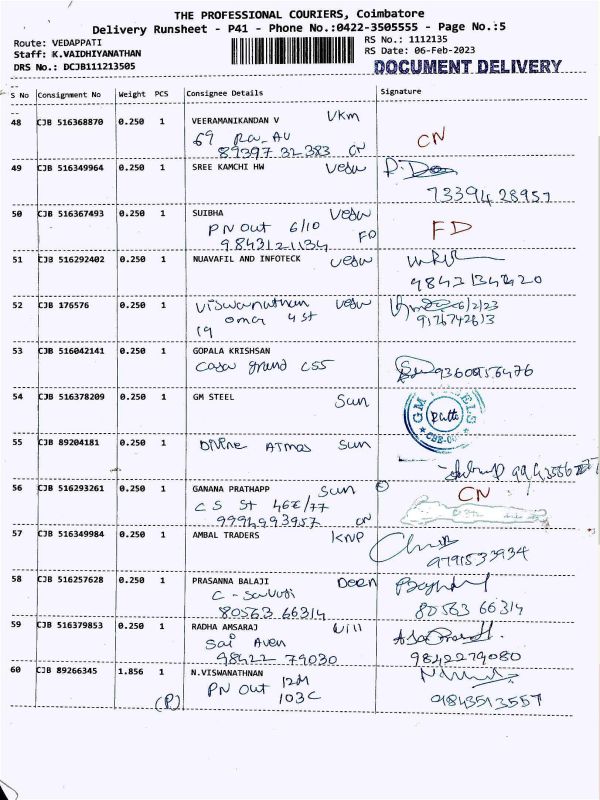 THE PROFESSIONAL COURIERS, Coimbatore
Delivery Runsheet - P41 - Phone No.:0422-3505555 - Page No.:5
Route: VEDAPPATI RS No.: 1112135
Staff: K.VAIDHIYANATHAN RS Date: 06-Feb-2023
DRS No.: DCJB111213505 DOCUMENT DELIVERY
S No Consignment No Weight PCS Consignee Details Signature
48 CJB 516368870 0.250 1 VEERAMANIKANDAN V VKm
69
89397 32383 CN CN
49 CJB 516349964 0.250 1 SREE KAMCHI HW Vedu
73394 28957
50 CJB 516367493 0.250 1 SUIBHA Vedu
PN Out 6/10 FD FD
9843121134
51 CJB 516292402 0.250 1 NUAVAFIL AND INFOTECK Vedu
52 CJB 176576 0.250 1 Viswanathan Vedu 6/2/23
19 4 st 9176742613
53 CJB 516042141 0.250 1 GOPALA KRISHSAN
Casa grand C55 9360956476
54 CJB 516378209 0.250 1 GM STEEL Sun GM
55 CJB 89204181 0.250 1 Divine ATmas Sun
56 CJB 516293261 0.250 1 GANANA PRATHAPP Sun CN
C S St 46E/77
9994993957 CN
57 CJB 516349984 0.250 1 AMBAL TRADERS KNP
9791533934
58 CJB 516257628 0.250 1 PRASANNA BALAJI Deen
80563 66314 80563 66314
59 CJB 516379853 0.250 1 RADHA AMSARAJ Vill
Sai Aven
98422 79030 9842279080
60 CJB 89266345 1.856 1 N.VISWANATHNAN
PN Out 12M
103C
(P) 09843513557